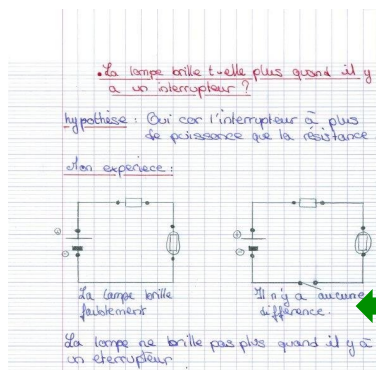 • La lampe brille t-elle plus quand il y
a un interrupteur ?
hypothèse : Oui car l'interrupteur à plus
de puissance que la résistance
Mon experiece :
La lampe brille
faiblement
Il n'y a aucune
différence.
La lampe ne brille pas plus quand il y à
un eterrupteur